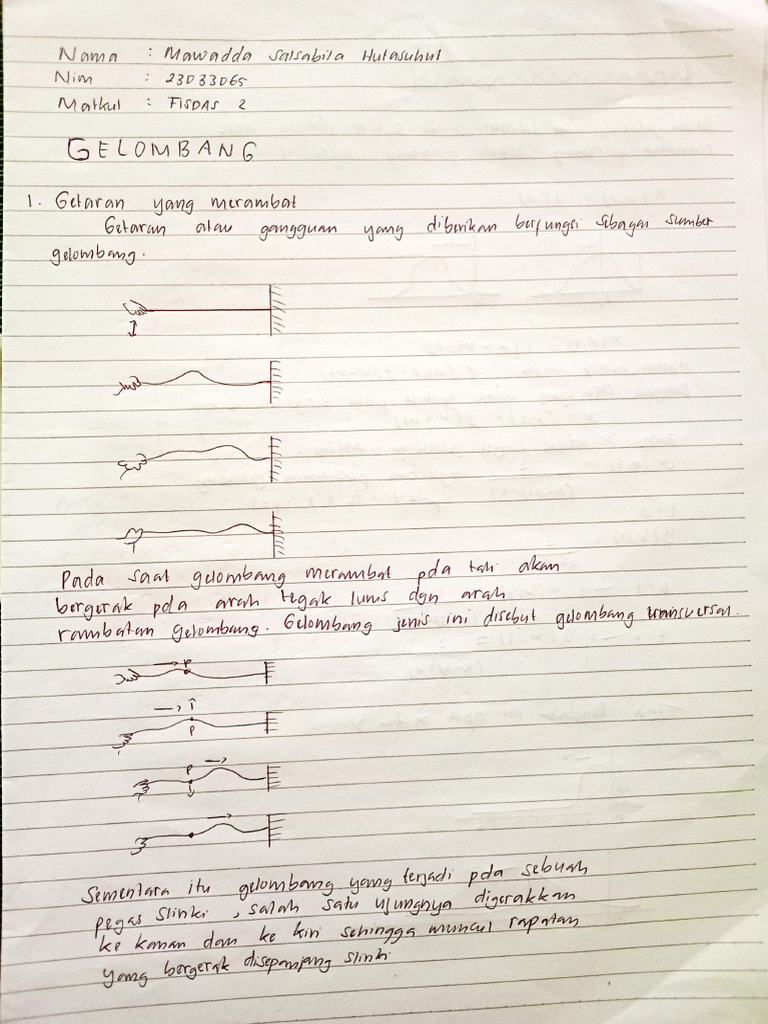 Nama : Mawadda Salsabila Hutasuhut
Nim : 23033065
Matkul : FISDAS 2
GELOMBANG
1. Getaran yang merambat
Getaran atau gangguan yang diberikan berfungsi sebagai sumber
gelombang.
Pada saat gelombang merambat pda tali akan
bergerak pda arah tegak lurus dgn arah
rambatan gelombang. Gelombang jenis ini disebut gelombang transversal.
P
P
P
Sementara itu gelombang yang terjadi pda sebuah
pegas slinki, salah satu ujungnya digerakkan
ke kanan dan ke kiri sehingga muncul rapatan
yang bergerak disepanjang slinki